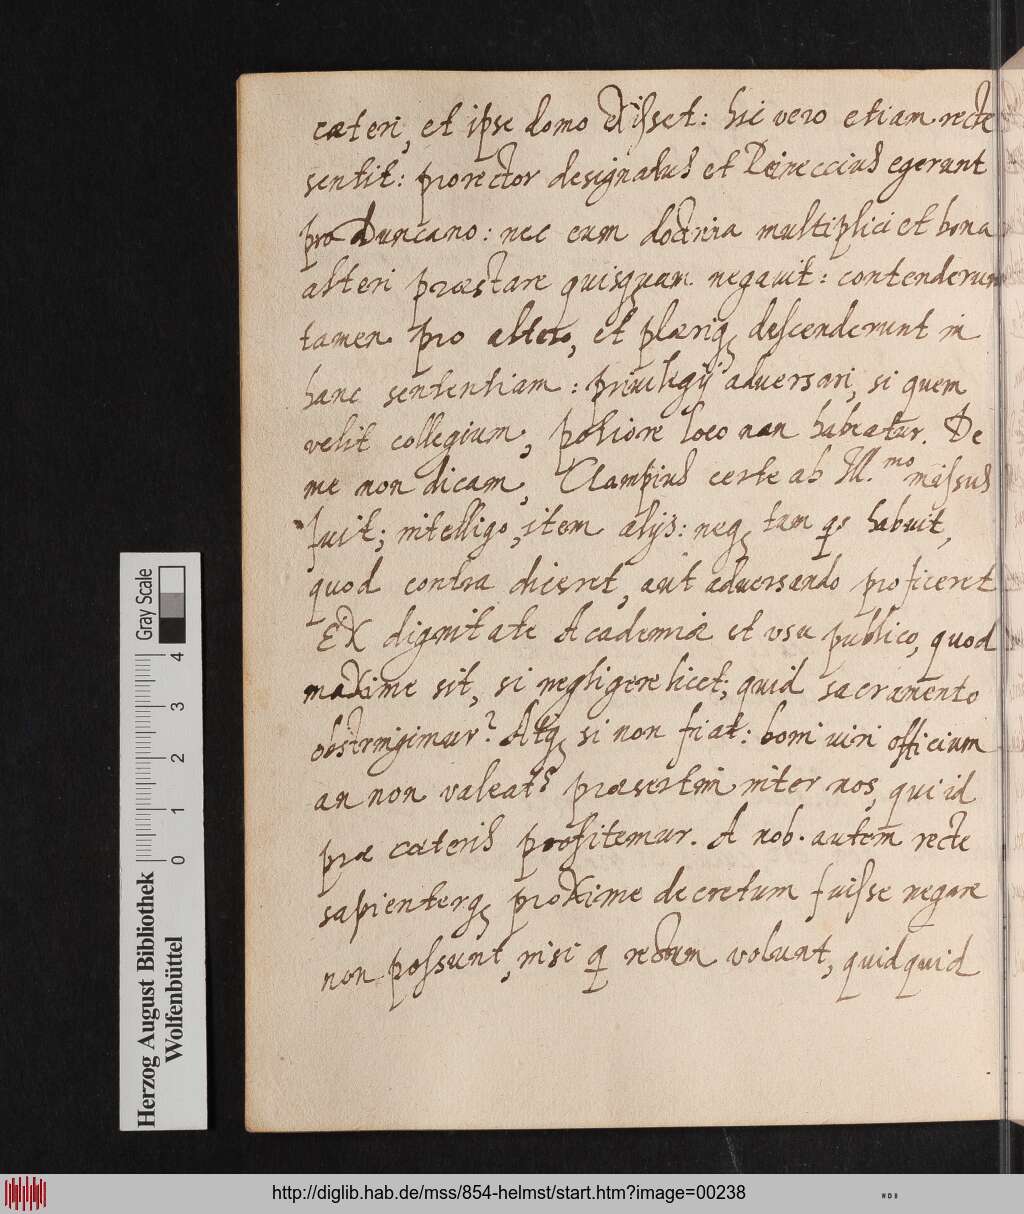 cæteri, et ipse domo exisset: hic vero etiam recte
sentit: prorector designatus et Reineccius egerunt
pro Duncano: nec eum doctrina multiplici et bona
alteri præstare quisquam negavit: contenderunt
tamen pro altero, et plæriq descenderunt in
hanc sententiam: privilegij adversari, si quem
velit collegium, potiore loco non habeatur. De
me non dicam, Clampius certe ab Ill.mo missus
fuit; intelligo, item alijs: neq tam qs habuit,
quod contra diceret, aut adversando proficeret
Ex dignitate Academiæ et usu publico, quod
maxime sit, si negligere licet; quid sacramento
obstringimur? Atq si non fiat: boni viri officium
an non valeat? præsertim inter nos, qui id
præ cæteris profitemur. A nob. autem recte
sapienterq proxime decretum fuisse negare
non possunt, nisi q rectum volunt, quidquid
Gray Scale
0 1 2 3 4
Herzog August Bibliothek
Wolfenbüttel
http://diglib.hab.de/mss/854-helmst/start.htm?image=00238
WDB